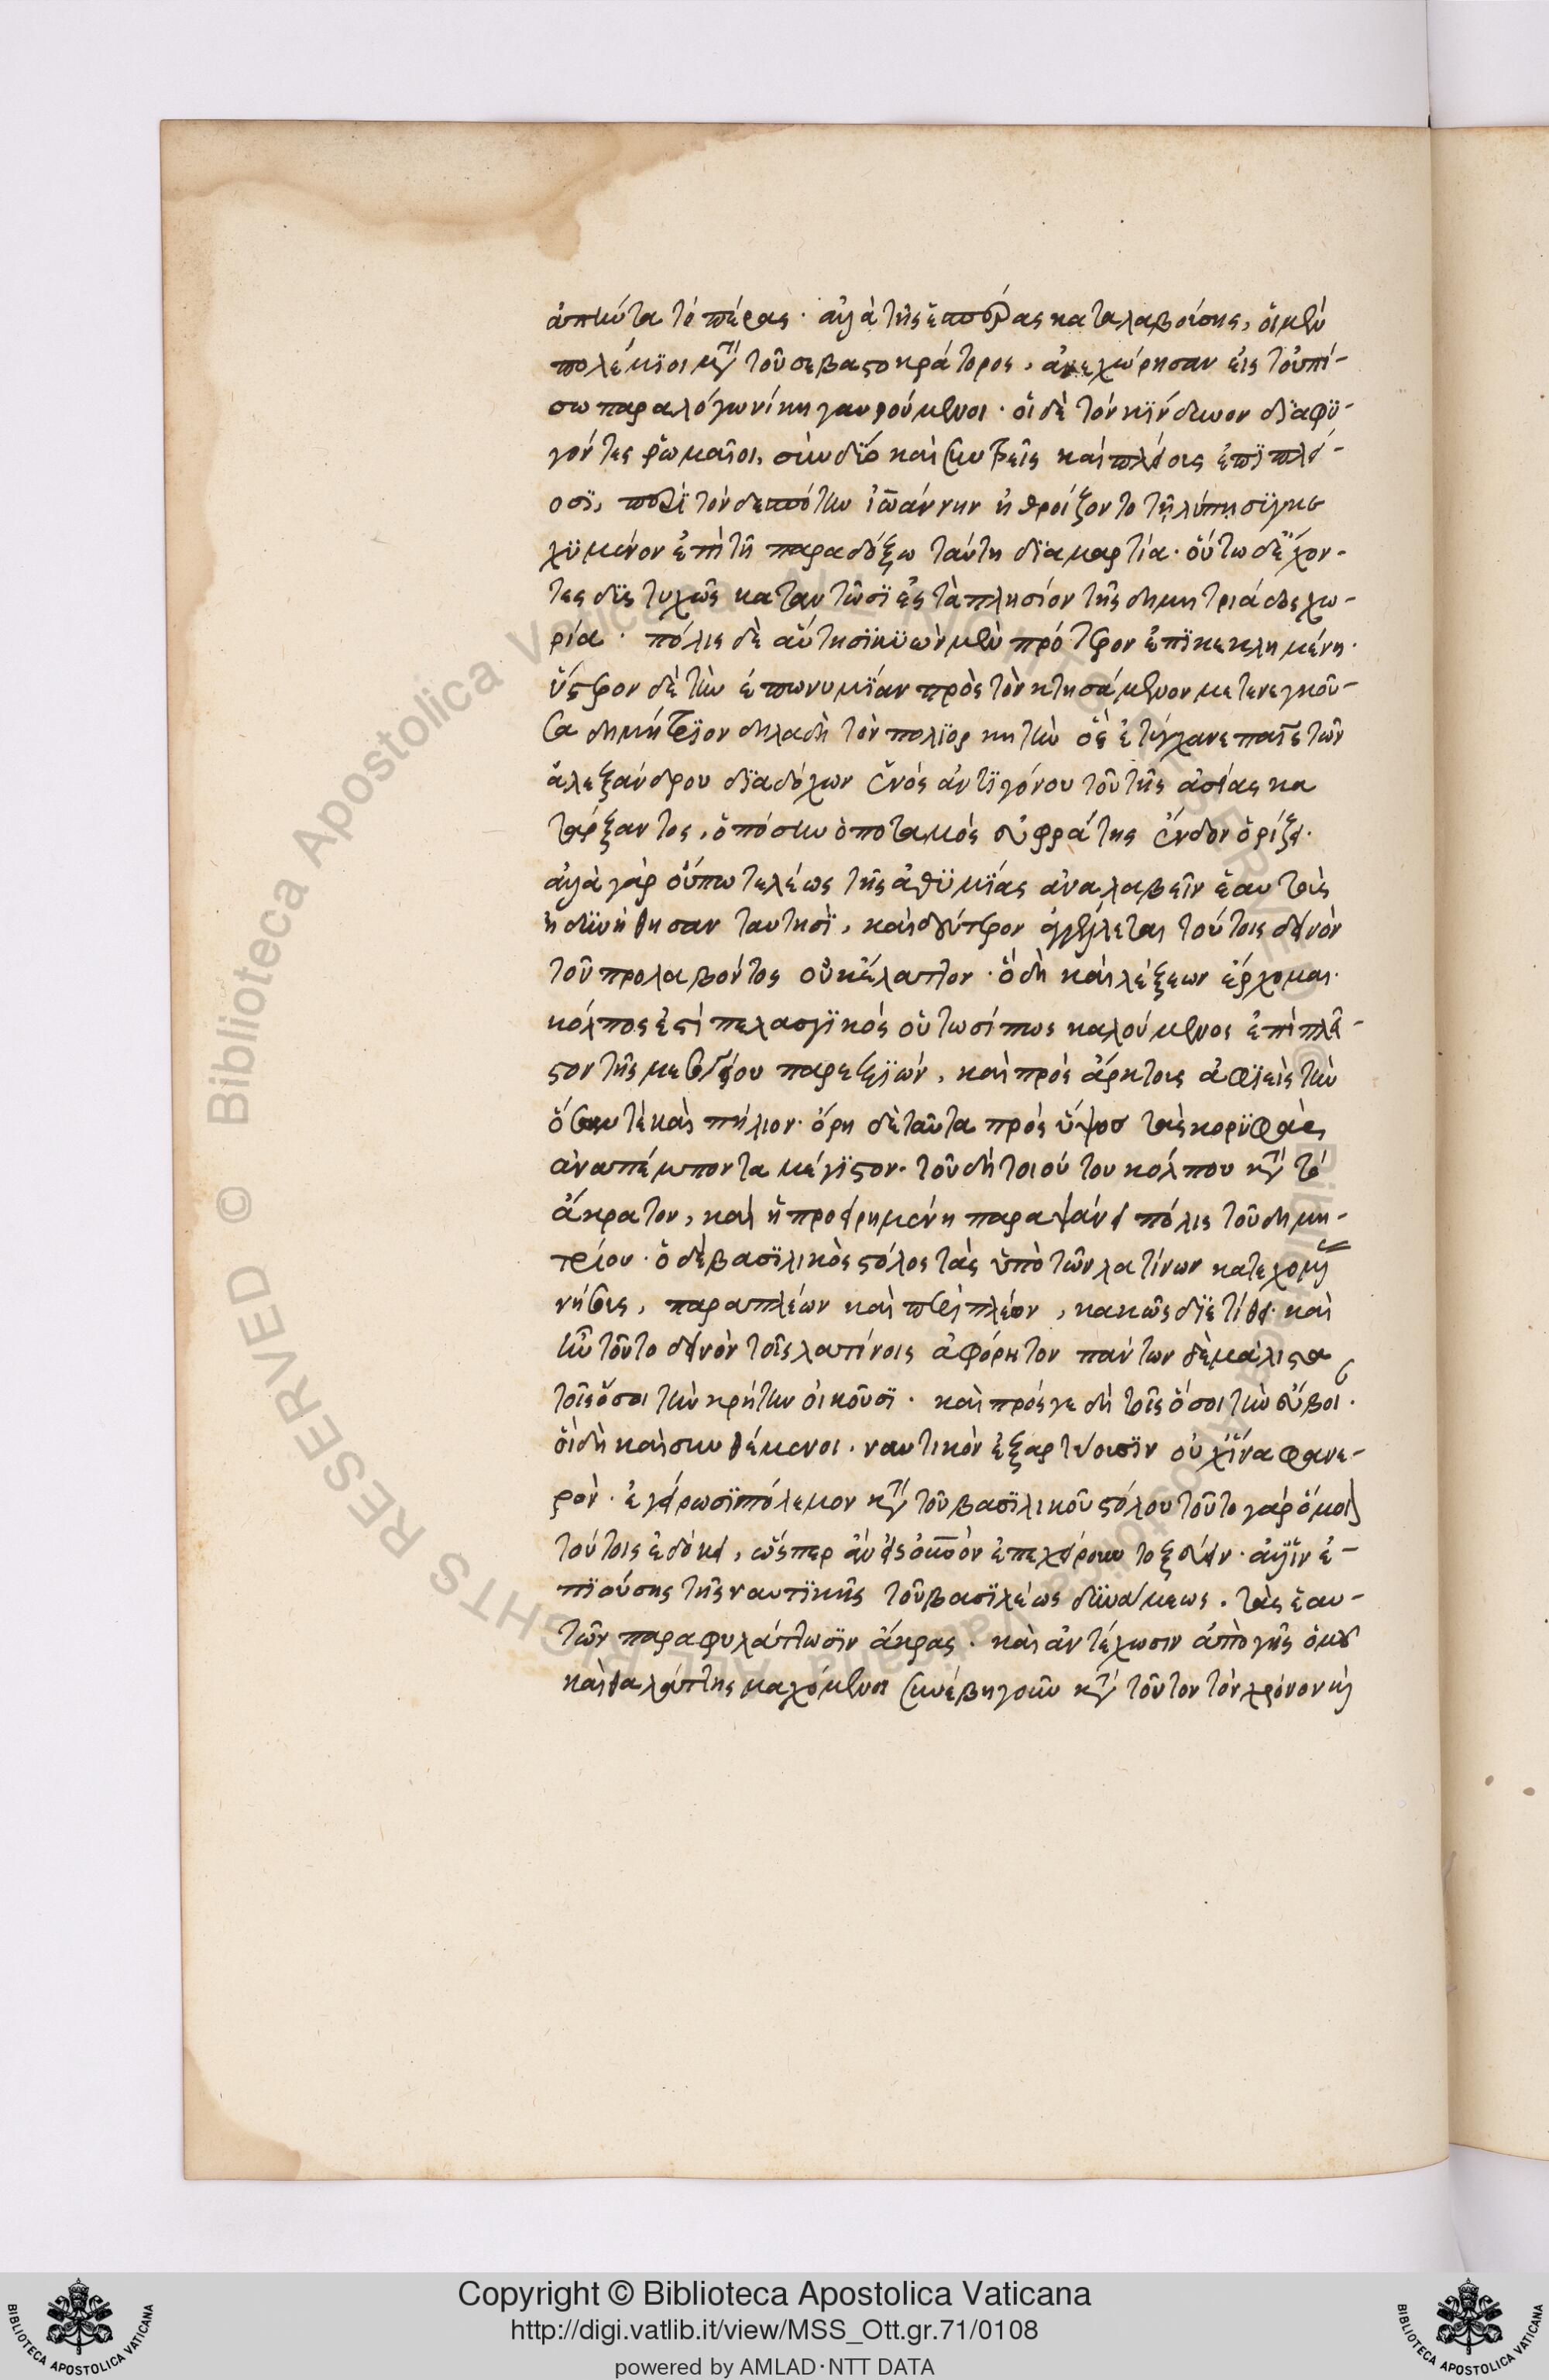 ἀπήντα τὸ πέρας · ἀλλὰ τῆς ἑσπέρας καταλαβούσης, οἱ μὲν
πολέμϊοι μετὰ τοῦ σεβαστοκράτορος, ἀνεχώρησαν εἰς τοὐπί-
σω παραλόγω νίκη γαυρούμενοι · οἱ δὲ τὸν κϊνδυνον δϊαφϋ-
γόντες ῥωμαῖοι, σὺν δύο καὶ συντρεῖς καὶ πλείους ἐπὶ πλεί-
οσϊ, περὶ τὸν δεσπότην ἰωάννην ἠθροίζοντο τῇ λύπη συγκε
χϋμένον ἐπὶ τῇ παραδόξω ταύτη δϊαμαρτία · οὕτω δ' ἔχον-
τες δϋςτυχῶς καταντῶσϊ εἰς τὰ πλησίον τῆς δημητριάδος χω-
ρία · πόλις δὲ αὕτη σϊκϋὼν μὲν πρότερον ἐπϊκεκλημένη ·
ὕστερον δὲ τὴν ἐπωνυμϊαν πρὸς τὸν κτησάμενον μετενεγκοῦ-
σα δημήτρϊον δηλαδὴ τὸν πολϊορκητὴν ὃς ἐτύγχανε παῖς τῶν
ἀλεξάνδρου δϊαδόχων ἑνὸς ἀντϊγόνου τοῦ τῆς ἀσίας κα
τάρξαντος, ὁπόσην ὁ ποταμὸς εὐφράτης ἔνδον ὁρίζει ·
ἀλλὰ γὰρ οὔπω τελέως τῆς ἀθϋμϊας ἀναλαβεῖν ἑαυτοὺς
ἠδϋνήθησαν ταυτησϊ, καὶ δεύτερον ἀγγέλλεται τούτοις δεινὸν
τοῦ προλαβόντος οὐκ ἔλαττον · ὃ δὴ καὶ λέξων ἔρχομαι ·
κόλπος ἐστὶ πελασγϊκὸς οὑτωσί πως καλούμενος ἐπὶ πλεῖ-
στον τῆς μεσογείου παρεξϊών, καὶ πρὸς ἄρκτους ἀφϊεὶς τὴν
ὄσσαν τὲ καὶ πήλιον · ὄρη δὲ ταῦτα πρὸς ὕψος τὰς κορϋφὰς
ἀναπέμποντα μέγϊστον · τοῦ δὴ τοιούτου κόλπου κατὰ τὸ
ἄκρατον, καὶ ἡ προειρημένη παραψάνει πόλις τοῦ δημη-
τρίου · ὁ δὲ βασϊλικὸς στόλος τὰς ὑπὸ τῶν λατίνων κατεχομένας
νήσους, παραπλέων καὶ περιπλέων, κακῶς δϊετίθει · καὶ
ἦν τοῦτο δεινὸν τοῖς λατίνοις ἀφόρητον πάντων δὲ μάλιστα
τοῖς ὅσοι τὴν κρήτην οἰκοῦσϊ · καὶ πρός γε δὴ τοῖς ὅσοι τὴν εὔβοι ·
οἳ δὴ καὶ συνθέμενοι · ναυτικὸν ἐξαρτύουσϊν οὐχ ἵνα φανε-
ρὸν · ἐγείρωσϊ πόλεμον κατὰ τοῦ βασϊλικοῦ στόλου τοῦτο γὰρ ὅμοιον
τούτοις ἐδόκει, ὥσπερ ἂν εἰς οὐρανὸν ἐπεχείρουν τοξεύειν · ἀλλ' ἵν' ἐ-
πϊούσης τῆς ναυτϊκῆς τοῦ βασϊλέως δϋνάμεως · τὰς ἑαυ-
τῶν παραφυλάττωσϊν ἄκρας · καὶ ἀντέχωσιν ἀπὸ γῆς ὁμοῦ
καὶ θαλάττης μαχόμενοι συνέβη γοῦν κατὰ τοῦτον τὸν χρόνον καὶ
Copyright © Biblioteca Apostolica Vaticana
http://digi.vatlib.it/view/MSS_Ott.gr.71/0108
powered by AMLAD·NTT DATA